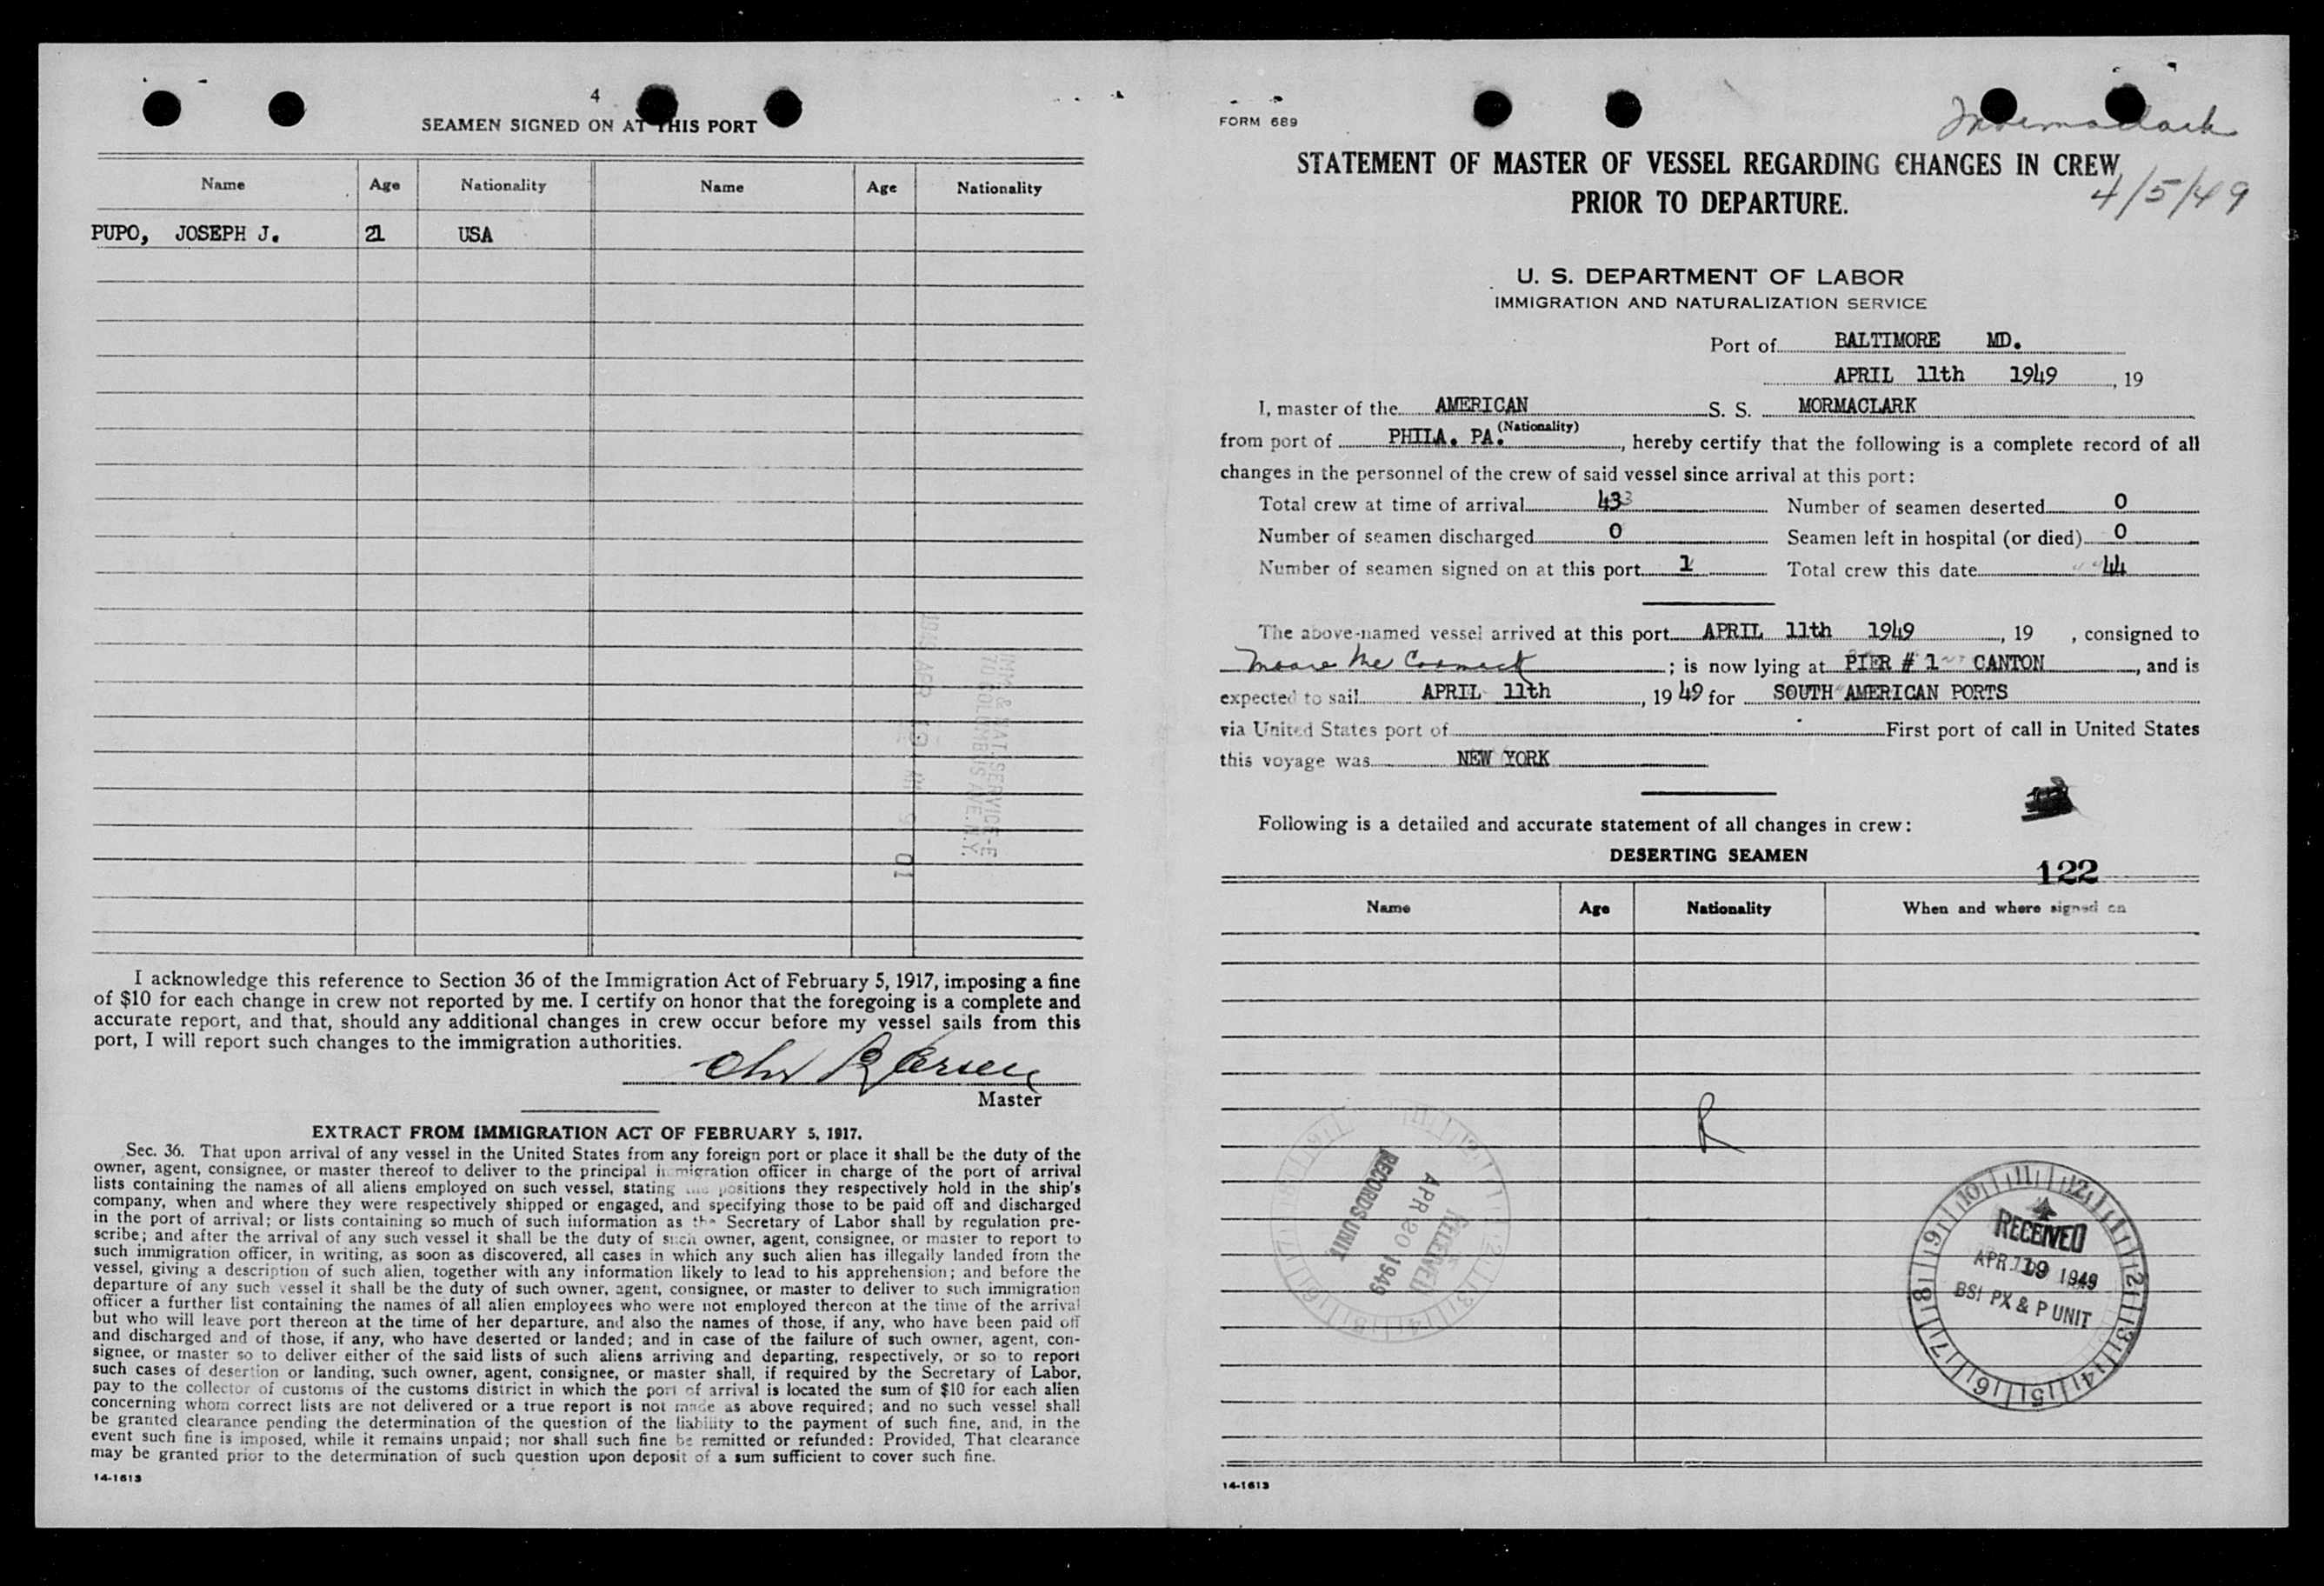 4
SEAMEN SIGNED ON AT THIS PORT
Name Age Nationality Name Age Nationality
PUPO, JOSEPH J. 21 USA
IMM. & NAT. SERVICE-E
70 COLUMBUS AVE. N.Y.
1949 APR 19 AM 9 01
I acknowledge this reference to Section 36 of the Immigration Act of February 5, 1917, imposing a fine
of $10 for each change in crew not reported by me. I certify on honor that the foregoing is a complete and
accurate report, and that, should any additional changes in crew occur before my vessel sails from this
port, I will report such changes to the immigration authorities.
Master
EXTRACT FROM IMMIGRATION ACT OF FEBRUARY 5, 1917.
Sec. 36. That upon arrival of any vessel in the United States from any foreign port or place it shall be the duty of the
owner, agent, consignee, or master thereof to deliver to the principal immigration officer in charge of the port of arrival
lists containing the names of all aliens employed on such vessel, stating the positions they respectively hold in the ship's
company, when and where they were respectively shipped or engaged, and specifying those to be paid off and discharged
in the port of arrival; or lists containing so much of such information as the Secretary of Labor shall by regulation pre-
scribe; and after the arrival of any such vessel it shall be the duty of such owner, agent, consignee, or master to report to
such immigration officer, in writing, as soon as discovered, all cases in which any such alien has illegally landed from the
vessel, giving a description of such alien, together with any information likely to lead to his apprehension; and before the
departure of any such vessel it shall be the duty of such owner, agent, consignee, or master to deliver to such immigration
officer a further list containing the names of all alien employees who were not employed thereon at the time of the arrival
but who will leave port thereon at the time of her departure, and also the names of those, if any, who have been paid off
and discharged and of those, if any, who have deserted or landed; and in case of the failure of such owner, agent, con-
signee, or master so to deliver either of the said lists of such aliens arriving and departing, respectively, or so to report
such cases of desertion or landing, such owner, agent, consignee, or master shall, if required by the Secretary of Labor,
pay to the collector of customs of the customs district in which the port of arrival is located the sum of $10 for each alien
concerning whom correct lists are not delivered or a true report is not made as above required; and no such vessel shall
be granted clearance pending the determination of the question of the liability to the payment of such fine, and, in the
event such fine is imposed, while it remains unpaid; nor shall such fine be remitted or refunded: Provided, That clearance
may be granted prior to the determination of such question upon deposit of a sum sufficient to cover such fine.
14-1613
FORM 689
Mormaclark
STATEMENT OF MASTER OF VESSEL REGARDING CHANGES IN CREW
PRIOR TO DEPARTURE.
4/5/49
U. S. DEPARTMENT OF LABOR
IMMIGRATION AND NATURALIZATION SERVICE
Port of BALTIMORE MD.
APRIL 11th 1949, 19
I, master of the AMERICAN S. S. MORMACLARK
(Nationality)
from port of PHILA. PA., hereby certify that the following is a complete record of all
changes in the personnel of the crew of said vessel since arrival at this port:
Total crew at time of arrival 43 Number of seamen deserted 0
Number of seamen discharged 0 Seamen left in hospital (or died) 0
Number of seamen signed on at this port 1 Total crew this date 44
The above-named vessel arrived at this port APRIL 11th 1949, 19 , consigned to
Moore McCormack; is now lying at PIER # 1 CANTON, and is
expected to sail APRIL 11th, 1949 for SOUTH AMERICAN PORTS
via United States port of First port of call in United States
this voyage was NEW YORK
Following is a detailed and accurate statement of all changes in crew:
DESERTING SEAMEN
122
Name Age Nationality When and where signed on
R
RECEIVED
APR 20 1949
RECORDS UNIT
RECEIVED
APR 19 1949
BSI PX & P UNIT
14-1613